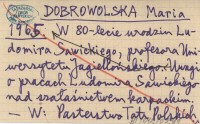 DOBROWOLSKA Maria
1965. W 80-lecie urodzin Lu-
domira Sawickiego, profesora Uni-
wersytetu Jagiellońskiego. Uwagi
o pracach Ludomira Sawickiego
nad szałaśnictwem karpackim.
— W: Pasterstwo Tatr Polskich